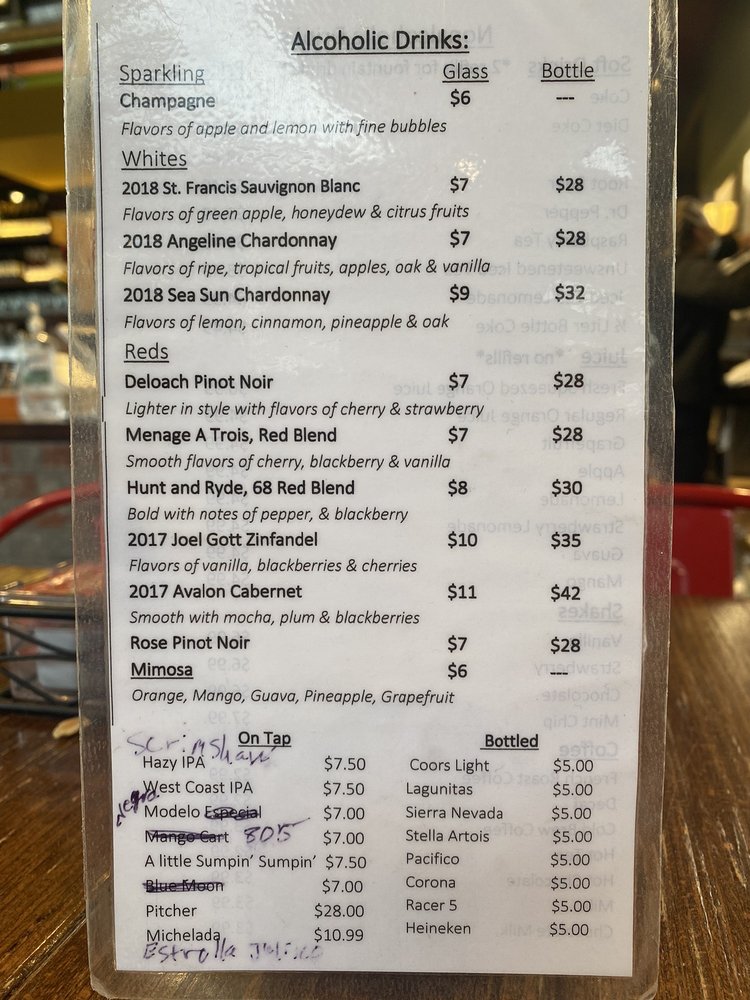 Alcoholic Drinks:
Sparkling Glass Bottle
Champagne $6 ---
Flavors of apple and lemon with fine bubbles
Whites
2018 St. Francis Sauvignon Blanc $7 $28
Flavors of green apple, honeydew & citrus fruits
2018 Angeline Chardonnay $7 $28
Flavors of ripe, tropical fruits, apples, oak & vanilla
2018 Sea Sun Chardonnay $9 $32
Flavors of lemon, cinnamon, pineapple & oak
Reds
Deloach Pinot Noir $7 $28
Lighter in style with flavors of cherry & strawberry
Menage A Trois, Red Blend $7 $28
Smooth flavors of cherry, blackberry & vanilla
Hunt and Ryde, 68 Red Blend $8 $30
Bold with notes of pepper, & blackberry
2017 Joel Gott Zinfandel $10 $35
Flavors of vanilla, blackberries & cherries
2017 Avalon Cabernet $11 $42
Smooth with mocha, plum & blackberries
Rose Pinot Noir $7 $28
Mimosa $6 ---
Orange, Mango, Guava, Pineapple, Grapefruit
On Tap
Scrimshaw
Hazy IPA $7.50
West Coast IPA $7.50
Negra
Modelo Especial $7.00
Mango Cart 805 $7.00
A little Sumpin' Sumpin' $7.50
Blue Moon $7.00
Pitcher $28.00
Michelada $10.99
Estrella Jalisco
Bottled
Coors Light $5.00
Lagunitas $5.00
Sierra Nevada $5.00
Stella Artois $5.00
Pacifico $5.00
Corona $5.00
Racer 5 $5.00
Heineken $5.00